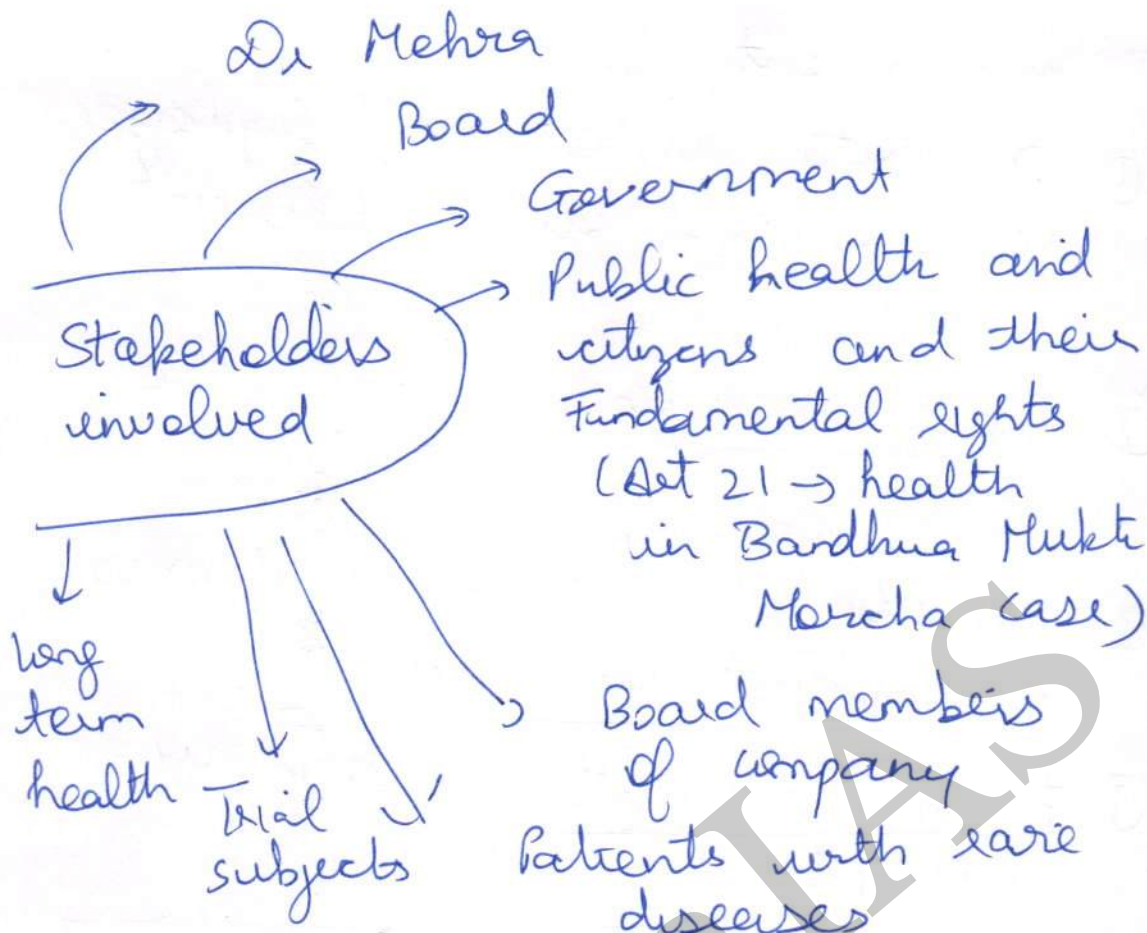 Dr Mehra
Board
Government
Public health and
citizens and their
Fundamental rights
(Art 21 → health
in Bandhua Mukti
Morcha case)
Stakeholders
involved
long
term
health
Trial
subjects
Board members
of company
Patients with rare
diseases
IAS